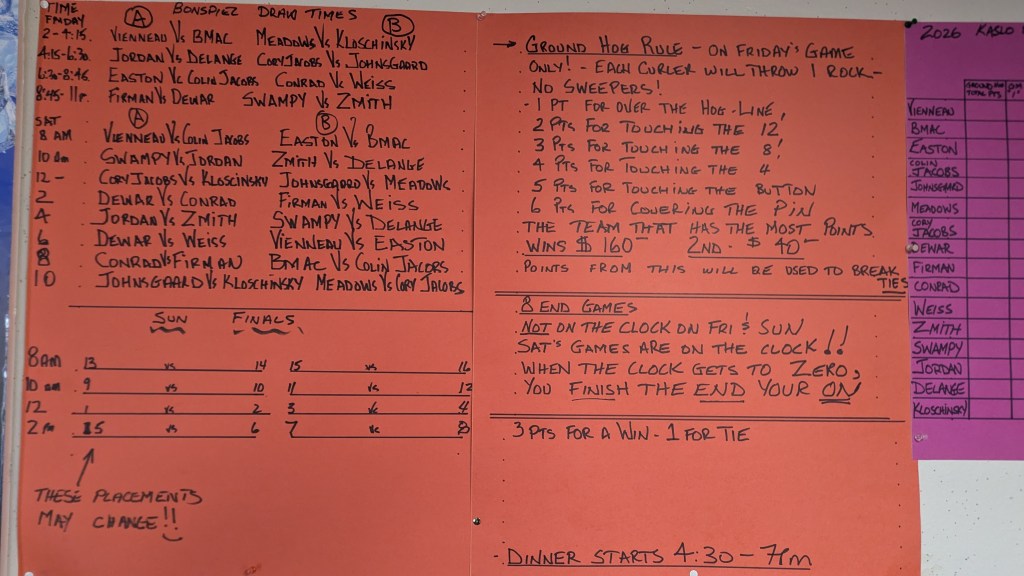 TIME (A) BONSPIEL DRAW TIMES (B)
FRIDAY
2-4:15. VIENNEAU VS BMAC MEADOWS VS KLOSCHINSKY
4:15-6:30 JORDAN VS DELANGE CORY JACOBS VS JOHNSGAARD
6:30-8:45 EASTON VS COLIN JACOBS CONRAD VS WEISS
8:45-11P. FIRMAN VS DEWAR SWAMPY VS ZMITH
SAT (A) (B)
8 AM VIENNEAU VS COLIN JACOBS EASTON VS BMAC
10 am SWAMPY VS JORDAN ZMITH VS DELANGE
12 - CORY JACOBS VS KLOSCINSKY JOHNSGAARD VS MEADOWS
2 DEWAR VS CONRAD FIRMAN VS WEISS
4 JORDAN VS ZMITH SWAMPY VS DELANGE
6 DEWAR VS WEISS VIENNEAU VS EASTON
8 CONRAD VS FIRMAN BMAC VS COLIN JACOBS
10 JOHNSGAARD VS KLOSCHINSKY MEADOWS VS CORY JACOBS
SUN FINALS
8AM 13 vs 14 15 vs 16
10 am 9 vs 10 11 vs 12
12 1 vs 2 3 vs 4
2 PM 5 vs 6 7 vs 8
THESE PLACEMENTS
MAY CHANGE!!
→ GROUND HOG RULE - ON FRIDAY'S GAME
ONLY! - EACH CURLER WILL THROW 1 ROCK -
NO SWEEPERS!
- 1 PT FOR OVER THE HOG-LINE,
2 PTS FOR TOUCHING THE 12'
3 PTS FOR TOUCHING THE 8'
4 PTS FOR TOUCHING THE 4
5 PTS FOR TOUCHING THE BUTTON
6 PTS FOR COVERING THE PIN
THE TEAM THAT HAS THE MOST POINTS
WINS $160- 2ND - $40-
POINTS FROM THIS WILL BE USED TO BREAK
TIES
8 END GAMES
NOT ON THE CLOCK ON FRI & SUN
SAT'S GAMES ARE ON THE CLOCK!!
WHEN THE CLOCK GETS TO ZERO,
YOU FINISH THE END YOUR ON
3 PTS FOR A WIN - 1 FOR TIE
- DINNER STARTS 4:30-7PM
2026 KASLO
GROUND HOG
TOTAL PTS
VIENNEAU
BMAC
EASTON
COLIN
JACOBS
JOHNSGAARD
MEADOWS
CORY
JACOBS
DEWAR
FIRMAN
CONRAD
WEISS
ZMITH
SWAMPY
JORDAN
DELANGE
KLOSCHINSKY